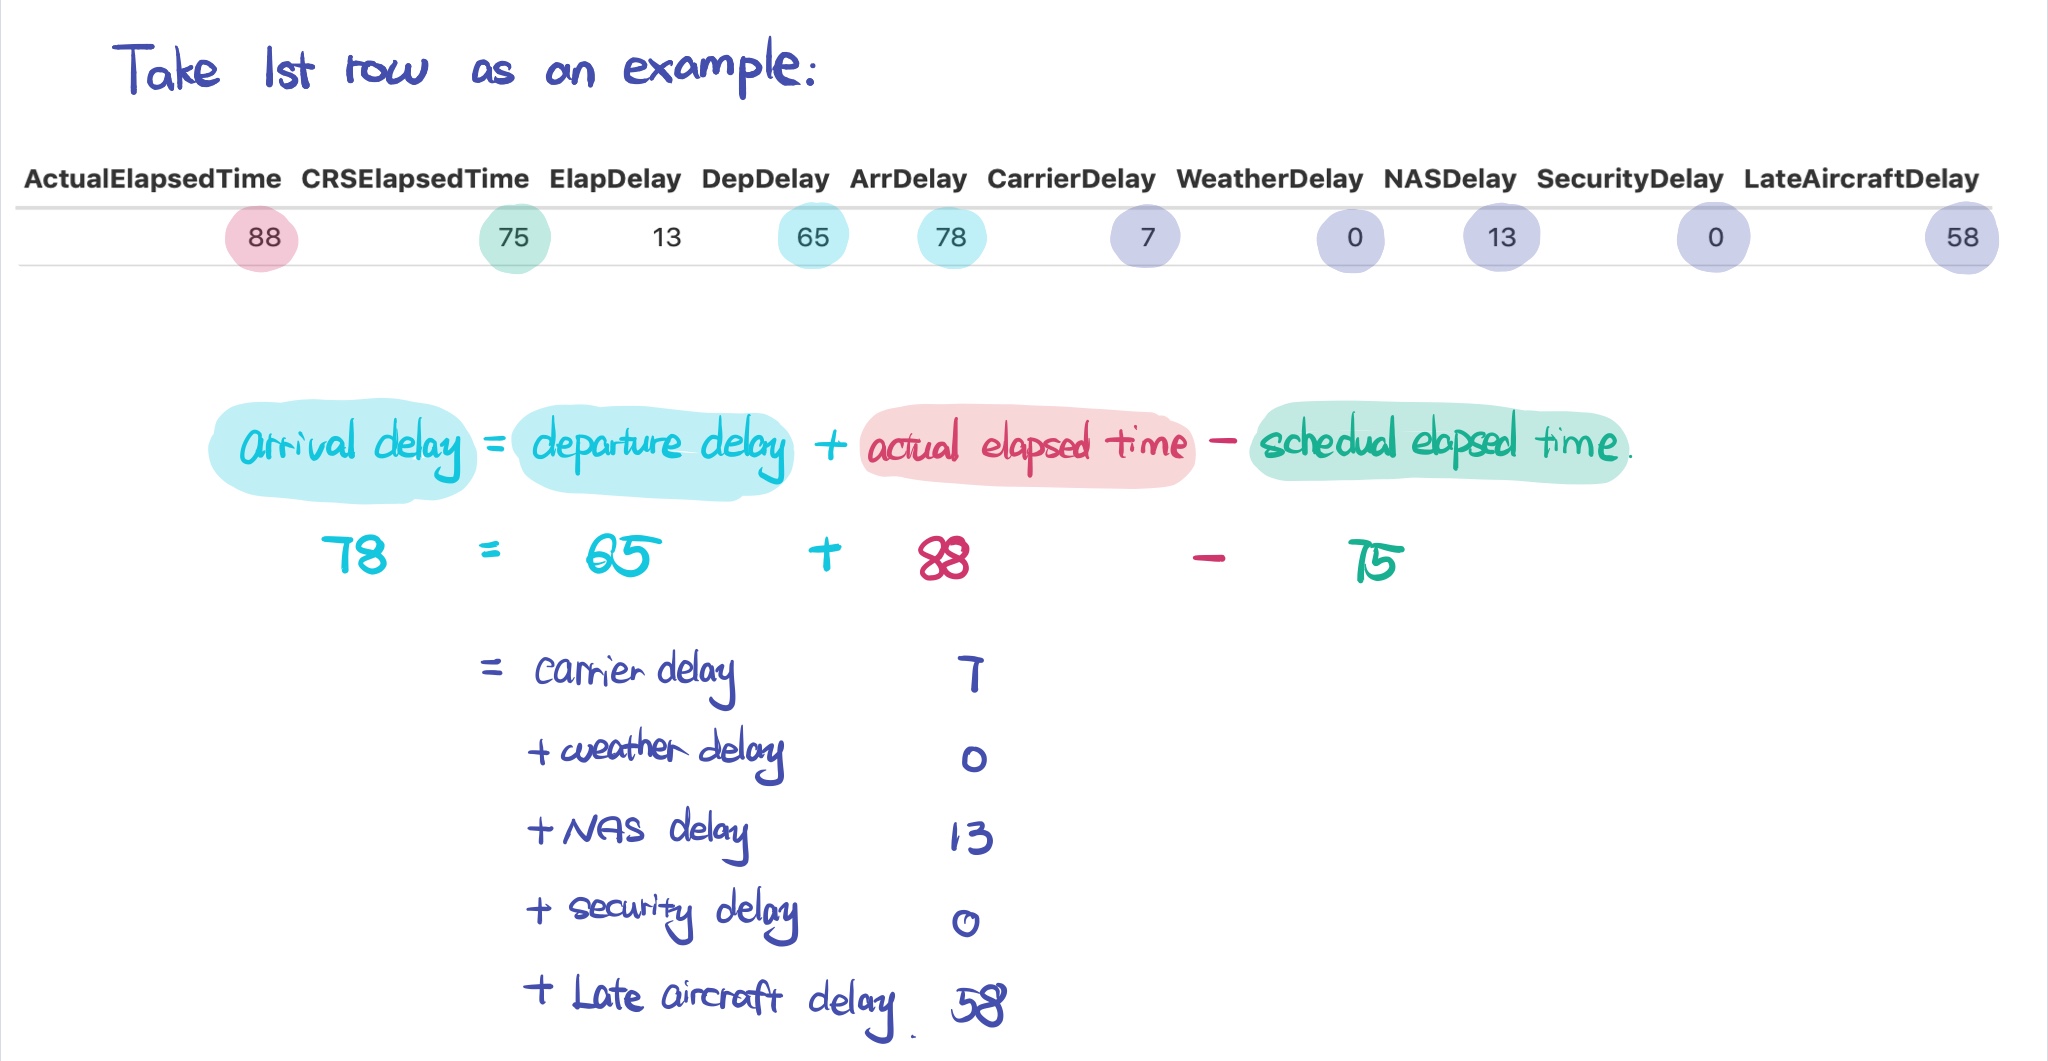 Take 1st row as an example:
ActualElapsedTime CRSElapsedTime ElapDelay DepDelay ArrDelay CarrierDelay WeatherDelay NASDelay SecurityDelay LateAircraftDelay
88 75 13 65 78 7 0 13 0 58
arrival delay = departure delay + actual elapsed time - schedual elapsed time.
78 = 65 + 88 - 75
= carrier delay 7
+ weather delay 0
+ NAS delay 13
+ security delay 0
+ Late aircraft delay. 58